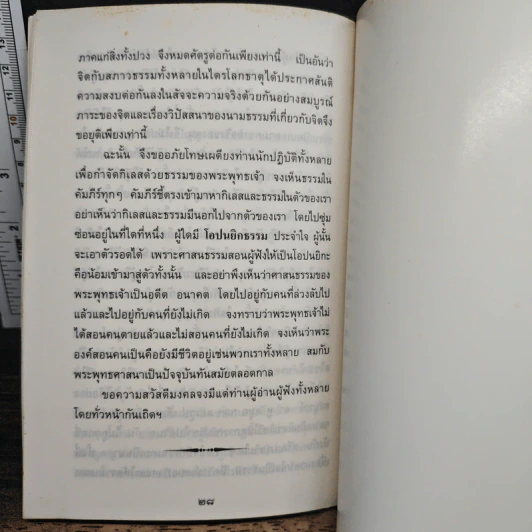 ภาคแก่สิ่งทั้งปวง จึงหมดศัตรูต่อกันเพียงเท่านี้ เป็นอันว่า
จิตกับสภาวธรรมทั้งหลายในไตรโลกธาตุได้ประกาศสันติ
ความสงบต่อกันลงในสัจจะความจริงด้วยกันอย่างสมบูรณ์
ภาระของจิตและเรื่องวิปัสสนาของนามธรรมที่เกี่ยวกับจิตจึง
ขอยุติเพียงเท่านี้
ฉะนั้น จึงขออภัยโทษเผดียงท่านนักปฏิบัติทั้งหลาย
เพื่อกำจัดกิเลสด้วยธรรมของพระพุทธเจ้า จงเห็นธรรมใน
คัมภีร์ทุกๆ คัมภีร์ชี้ตรงเข้ามาหากิเลสและธรรมในตัวของเรา
อย่าเห็นว่ากิเลสและธรรมมีนอกไปจากตัวของเรา โดยไปซุ่ม
ซ่อนอยู่ในที่ใดที่หนึ่ง ผู้ใดมี โอปนยิกธรรม ประจำใจ ผู้นั้น
จะเอาตัวรอดได้ เพราะศาสนธรรมสอนผู้ฟังให้เป็นโอปนยิกะ
คือน้อมเข้ามาสู่ตัวทั้งนั้น และอย่าพึงเห็นว่าศาสนธรรมของ
พระพุทธเจ้าเป็นอดีต อนาคต โดยไปอยู่กับคนที่ล่วงลับไป
แล้วและไปอยู่กับคนที่ยังไม่เกิด จงทราบว่าพระพุทธเจ้าไม่
ได้สอนคนตายแล้วและไม่สอนคนที่ยังไม่เกิด จงเห็นว่าพระ
องค์สอนคนเป็นคือยังมีชีวิตอยู่เช่นพวกเราทั้งหลาย สมกับ
พระพุทธศาสนาเป็นปัจจุบันทันสมัยตลอดกาล
ขอความสวัสดีมงคลจงมีแด่ท่านผู้อ่านผู้ฟังทั้งหลาย
โดยทั่วหน้ากันเถิดฯ
๒๘